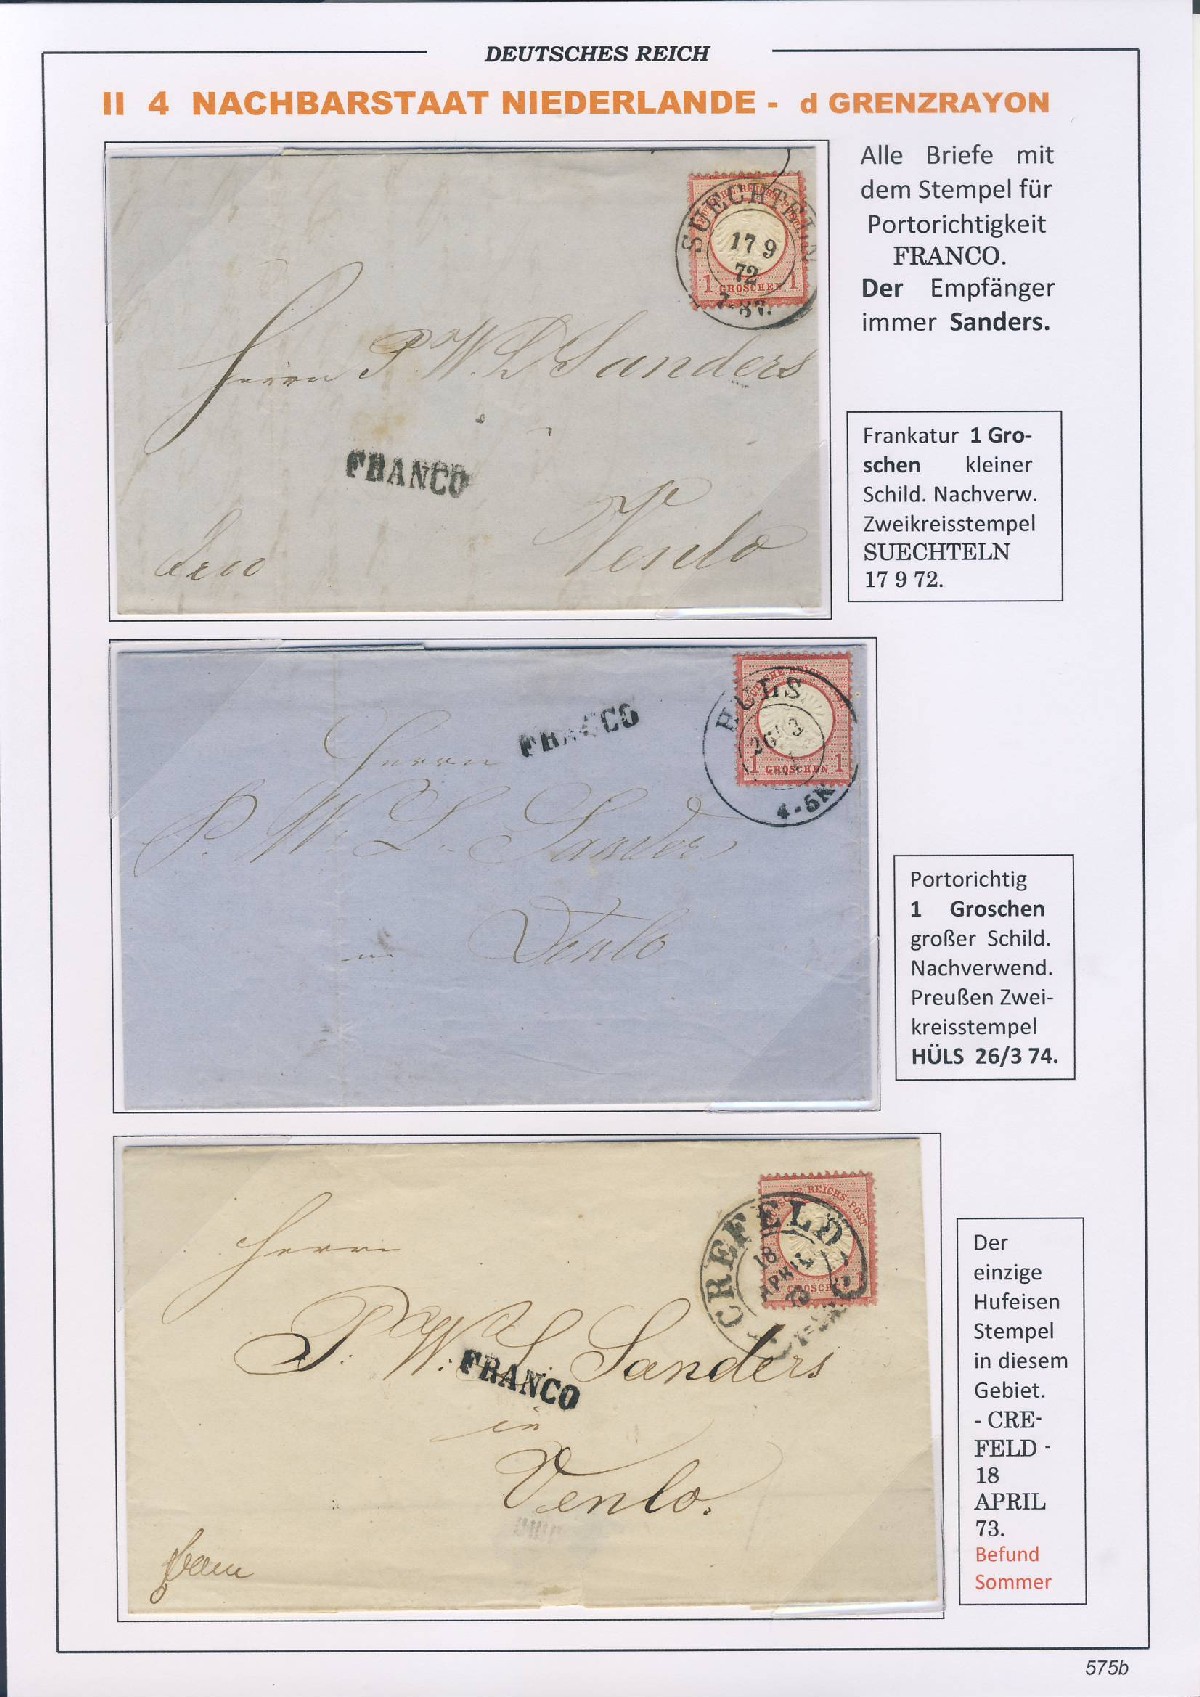 DEUTSCHES REICH
II 4 NACHBARSTAAT NIEDERLANDE - d GRENZRAYON
Alle Briefe mit
dem Stempel für
Portorichtigkeit
FRANCO.
Der Empfänger
immer Sanders.
SUECHTELN
17 9
72
7-8V.
1 GROSCHEN 1
Herrn P W L Sanders
FRANCO
Venlo
franco
Frankatur 1 Gro-
schen kleiner
Schild. Nachverw.
Zweikreisstempel
SUECHTELN
17 9 72.
FRANCO
HULS
26 3
4-5N
1 GROSCHEN 1
Herrn
P. W. L. Sanders
in Venlo
Portorichtig
1 Groschen
großer Schild.
Nachverwend.
Preußen Zwei-
kreisstempel
HÜLS 26/3 74.
REICHS-POST
CREFELD
18
APRIL
GROSCHEN
Herrn
P. W. L. Sanders
FRANCO
in
Venlo.
Der
einzige
Hufeisen
Stempel
in diesem
Gebiet.
- CRE-
FELD -
18
APRIL
73.
Befund
Sommer
575b